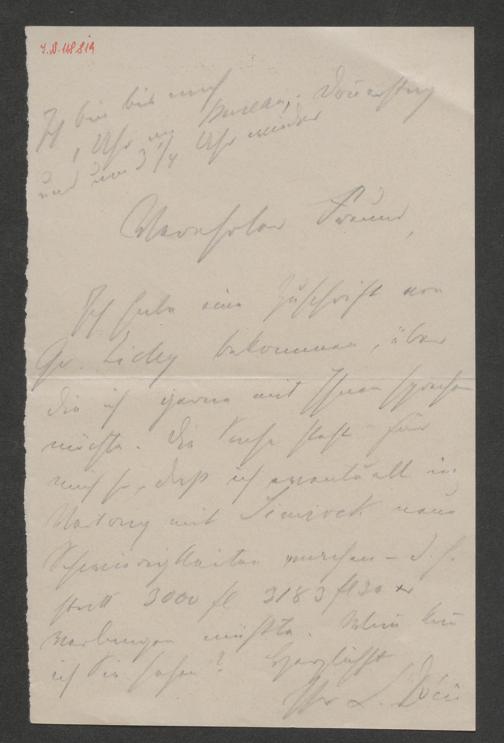 J.N. 148.819
Ich bin bis nach
1 Uhr im Bureau,
und um 3 1/4 Uhr wieder
Verehrter Freund,
Ich habe eine Zuschrift von
Gr. Zichy bekommen, über
die ich gerne mit Ihnen sprechen
möchte. Die Sache steht für
mich so, daß ich eventuell im
Vertrag mit Simrock neue
Schwierigkeiten machen – d. h.
statt 3000 fl 3183 fl 30 xr
verlangen müßte. Wann kann
ich Sie sehen? Herzlichst
Ihr L. Dóczi